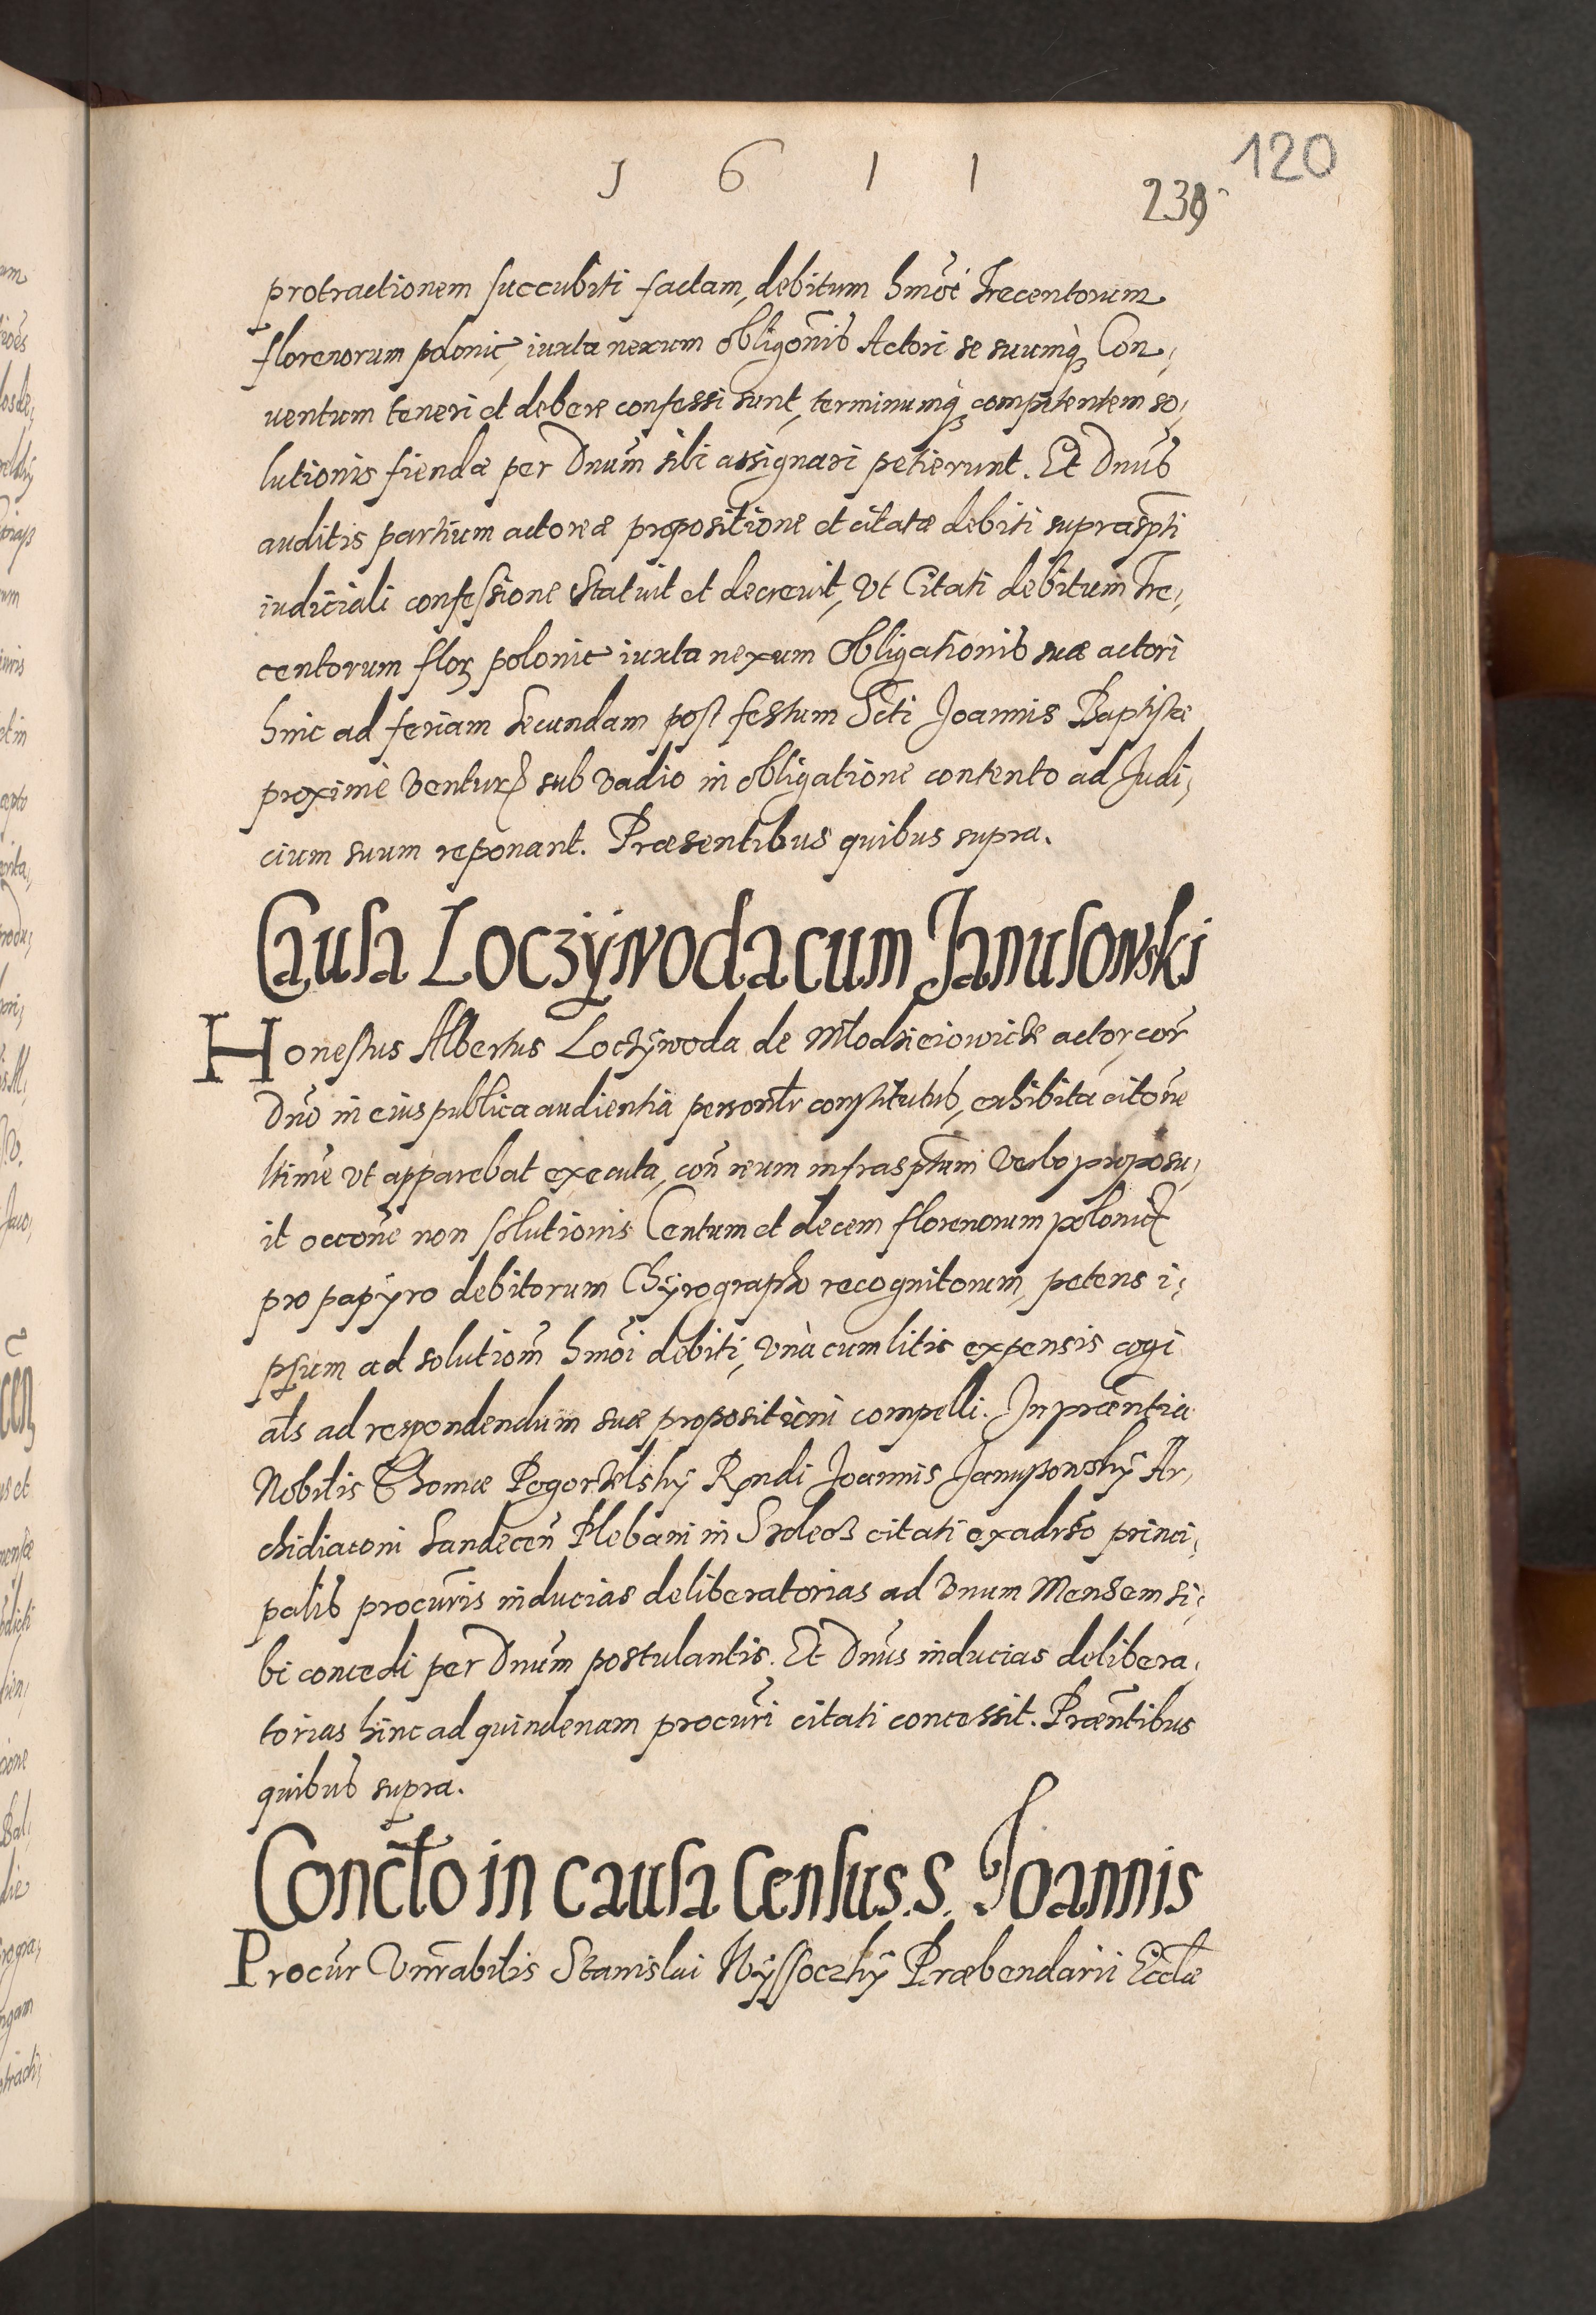 1 6 1 1
120
239
protractionem succubiti factam, debitum hmōi Trecentorum
florenorum polonic, iuxta nexum obligōnis Actori se suumq̃ Con,
uentum teneri et debere confessi sunt, terminumq̃ competentem so,
lutionis fiendæ per Dnūm sibi assignari petierunt. Et Dnūs
auditis partium actoreæ propositione et citatæ debiti suprasp̄ti
iudiciali confessione statuit et decrevit, vt Citati debitum Tre,
centorum flor polonic iuxta nexum Obligationis suæ actori
hinc ad feriam secundam post festum Scti Joannis Baptistæ
proximè ventur sub vadio in obligatione contento ad Judi,
cium suum reponant. Præsentibus quibus supra.
Causa Loczÿwoda cum Janusowski
Honestus Albertus Loczÿwoda de Młodzieiowicze actor, cor̄
Dnō in eius publica audientia personłr constitutus, exhibita citōne
ltime vt apparebat executa, con̄ reum infrasp̄tum verbo proposu,
it occōne non solutionis Centum et decem florenorum polonic
pro papÿro debitorum Chÿrographo recognitorum, petens i,
psum ad solutiom̄ hmōi debiti, vnà cum litis expensis cogi
als ad respondendum suæ propositioni compelli. In præntia
Nobilis Thomæ Pogorzelskÿ Rndi Joannis Januszowskÿ Ar,
chidiaconi Sandecen̄ Plebani in Solecz citati ex adrso princi,
palis procuris inducias deliberatorias ad vnum Mensem si,
bi concedi per Dnūm postulantis. Et Dnūs inducias delibera,
torias hinc ad quindenam procuri citati concessit. Præntibus
quibus supra.
Conclto in causa Census. S. Joannis
Procūr Vnrabilis Stanislai Wÿssoczkÿ Præbendarii Ecclæ